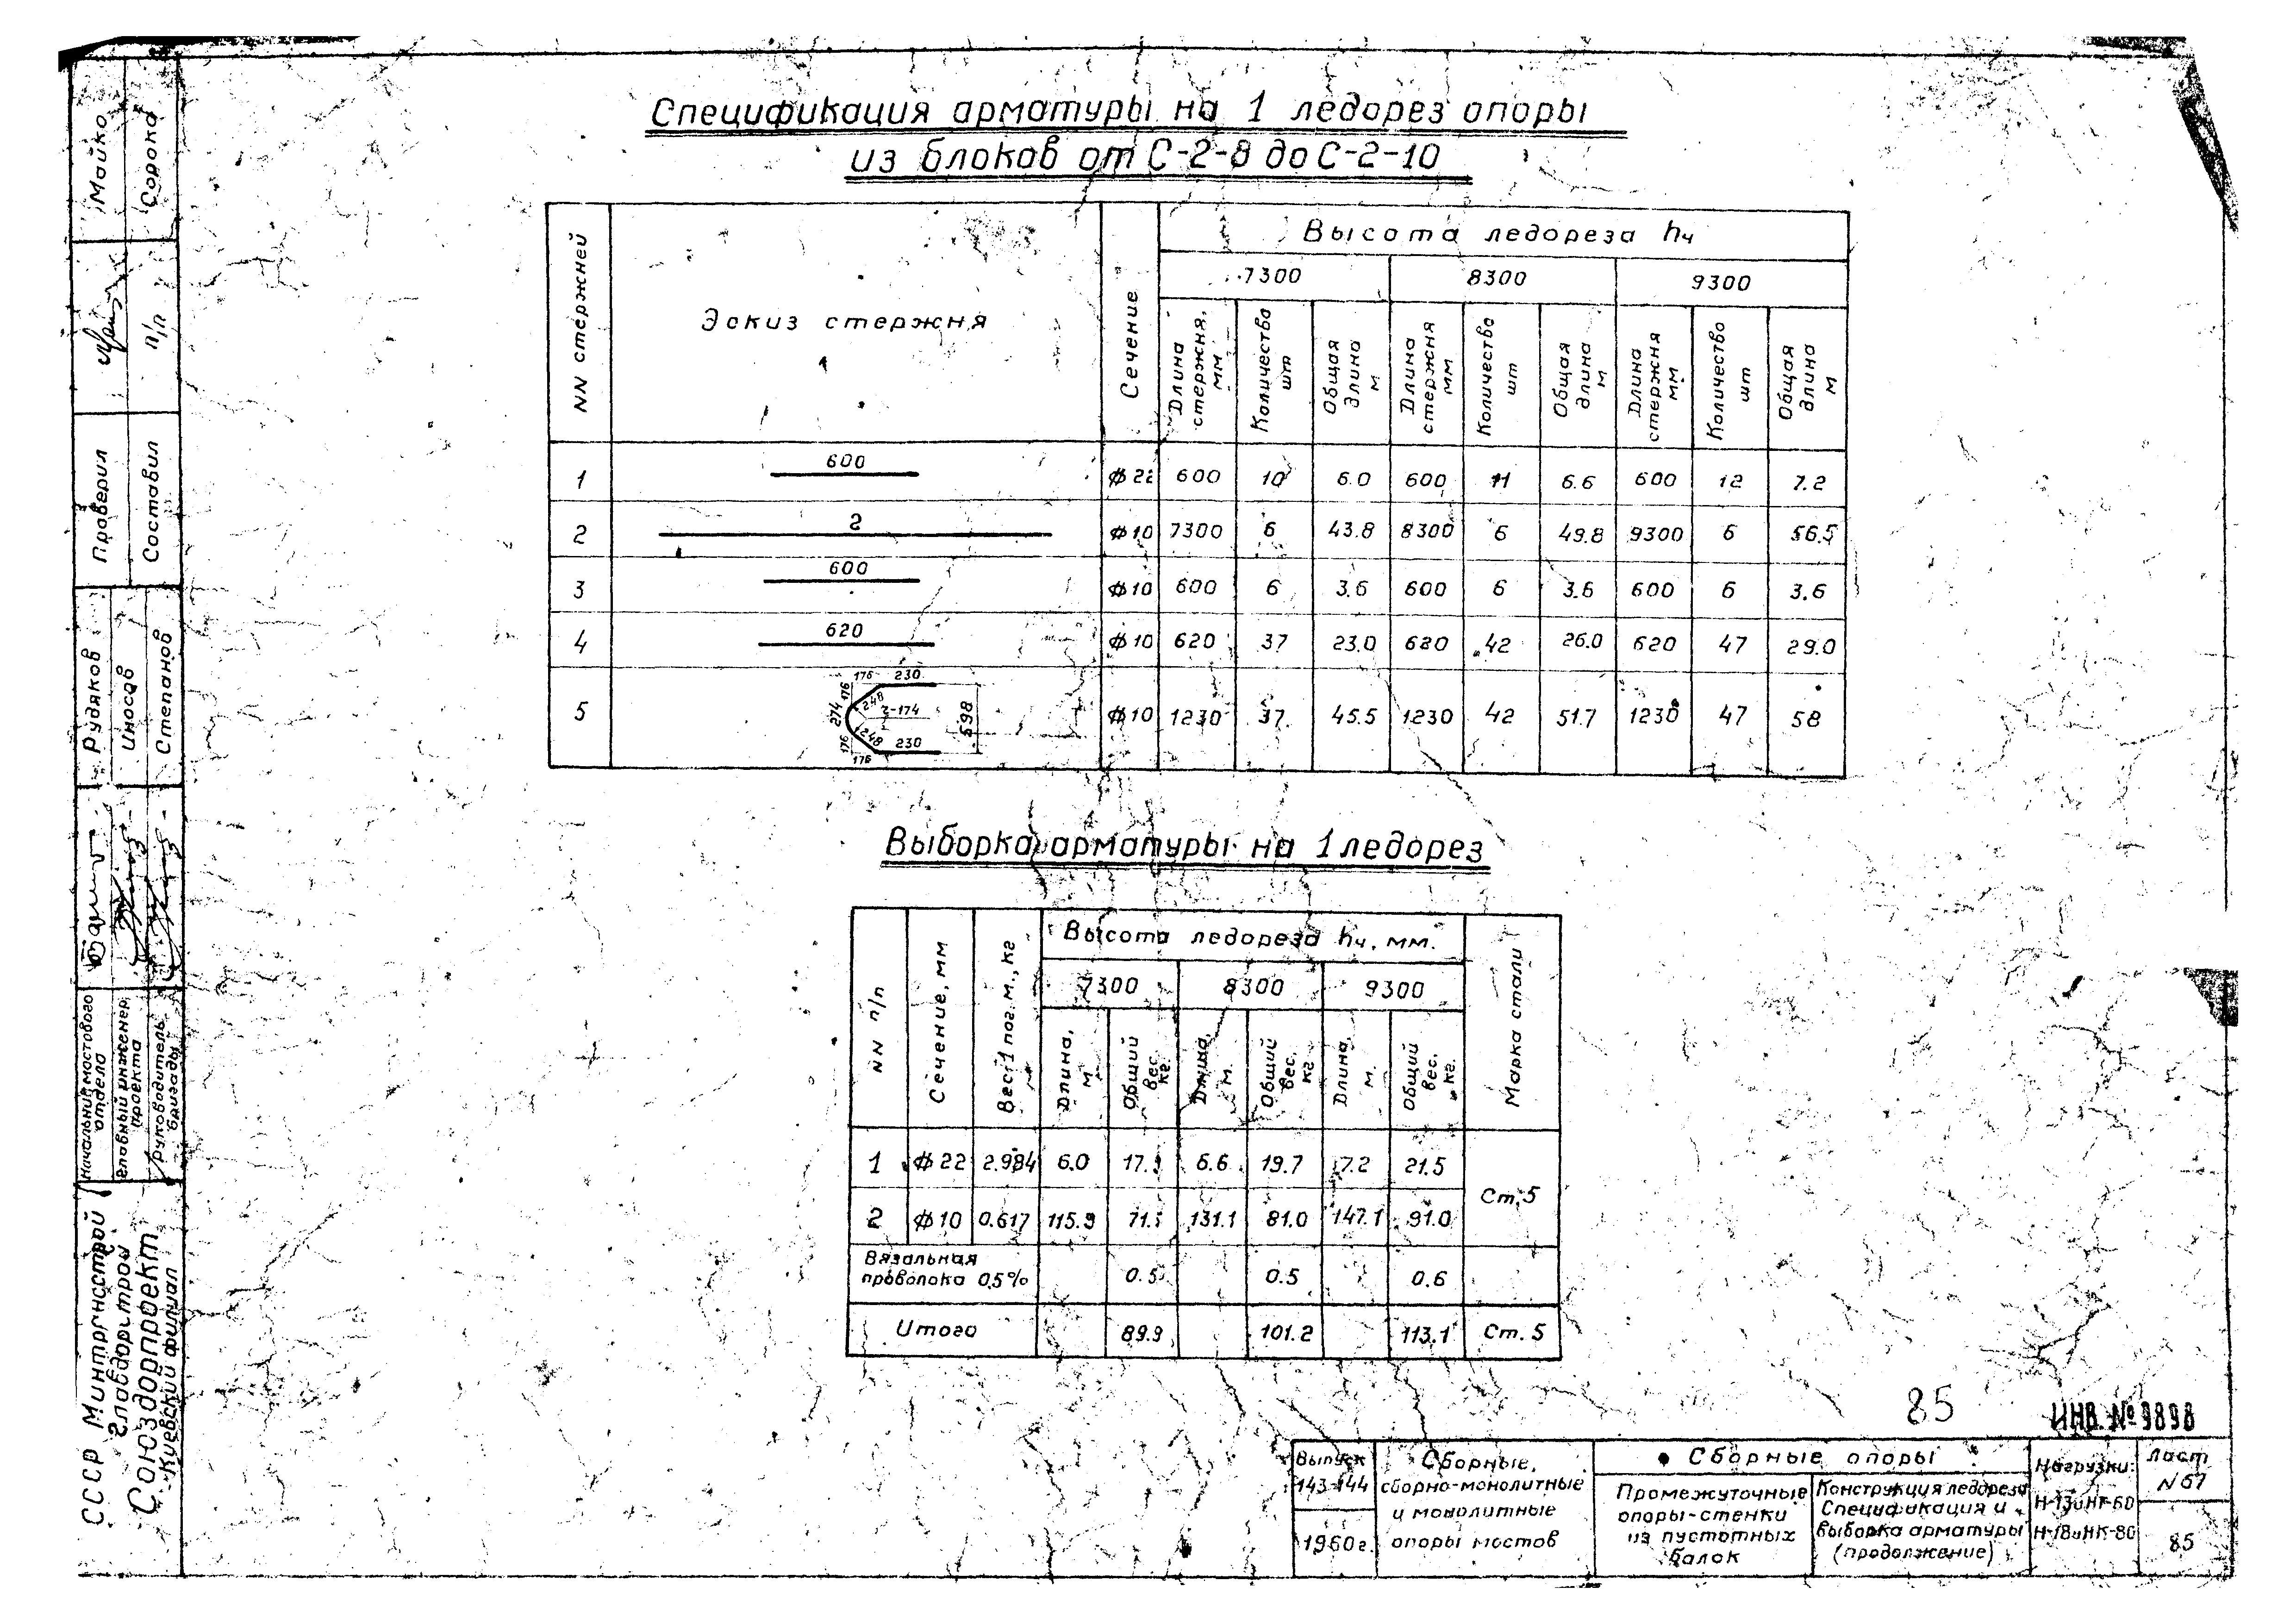 Спецификация арматуры на 1 ледорез опоры
из блоков от С-2-8 до С-2-10
NN стержней
Эскиз стержня
Сечение
Высота ледореза hч
7300 8300 9300
Длина стержня, мм Количество шт Общая длина м Длина стержня мм Количество шт Общая длина м Длина стержня мм Количество шт Общая длина м
1 600 ф22 600 10 6.0 600 11 6.6 600 12 7.2
2 2 ф10 7300 6 43.8 8300 6 49.8 9300 6 56.5
3 600 ф10 600 6 3.6 600 6 3.6 600 6 3.6
4 620 ф10 620 37 23.0 620 42 26.0 620 47 29.0
5 ф10 1230 37 45.5 1230 42 51.7 1230 47 58
176 230
176 248
274 2-174 698
176 248 230
176
Выборка арматуры на 1 ледорез
NN п/п
Сечение, мм
Вес 1 пог. м., кг
Высота ледореза hч, мм.
Марка стали
7300 8300 9300
Длина, м Общий вес. кг. Длина, м. Общий вес. кг Длина, м. Общий вес. кг.
1 ф22 2.984 6.0 17.9 6.6 19.7 7.2 21.5
Ст.5
2 ф10 0.617 115.9 71.5 131.1 81.0 147.1 91.0
Вязальная
проволока 0.5% 0.5 0.5 0.6
Итого 89.9 101.2 113.1 Ст. 5
85
ИНВ. № 9898
Выпуск
143-144
1960г.
Сборные,
сборно-монолитные
и монолитные
опоры мостов
Сборные опоры
Промежуточные
опоры-стенки
из пустотных
балок
Конструкция ледореза
Спецификация и
выборка арматуры
(продолжение)
Нагрузки:
Н-13 и НГ-60
Н-18 и НК-80
Лист
N 67
85
Майко
Сорока
п/п
Проверил
Составил
Рудяков
Иносов
Степанов
Начальник мостового
отдела
Главный инженер
проекта
Руководитель
бригады
СССР Минтрансстрой
Главдорстрой
Союздорпроект
Киевский филиал